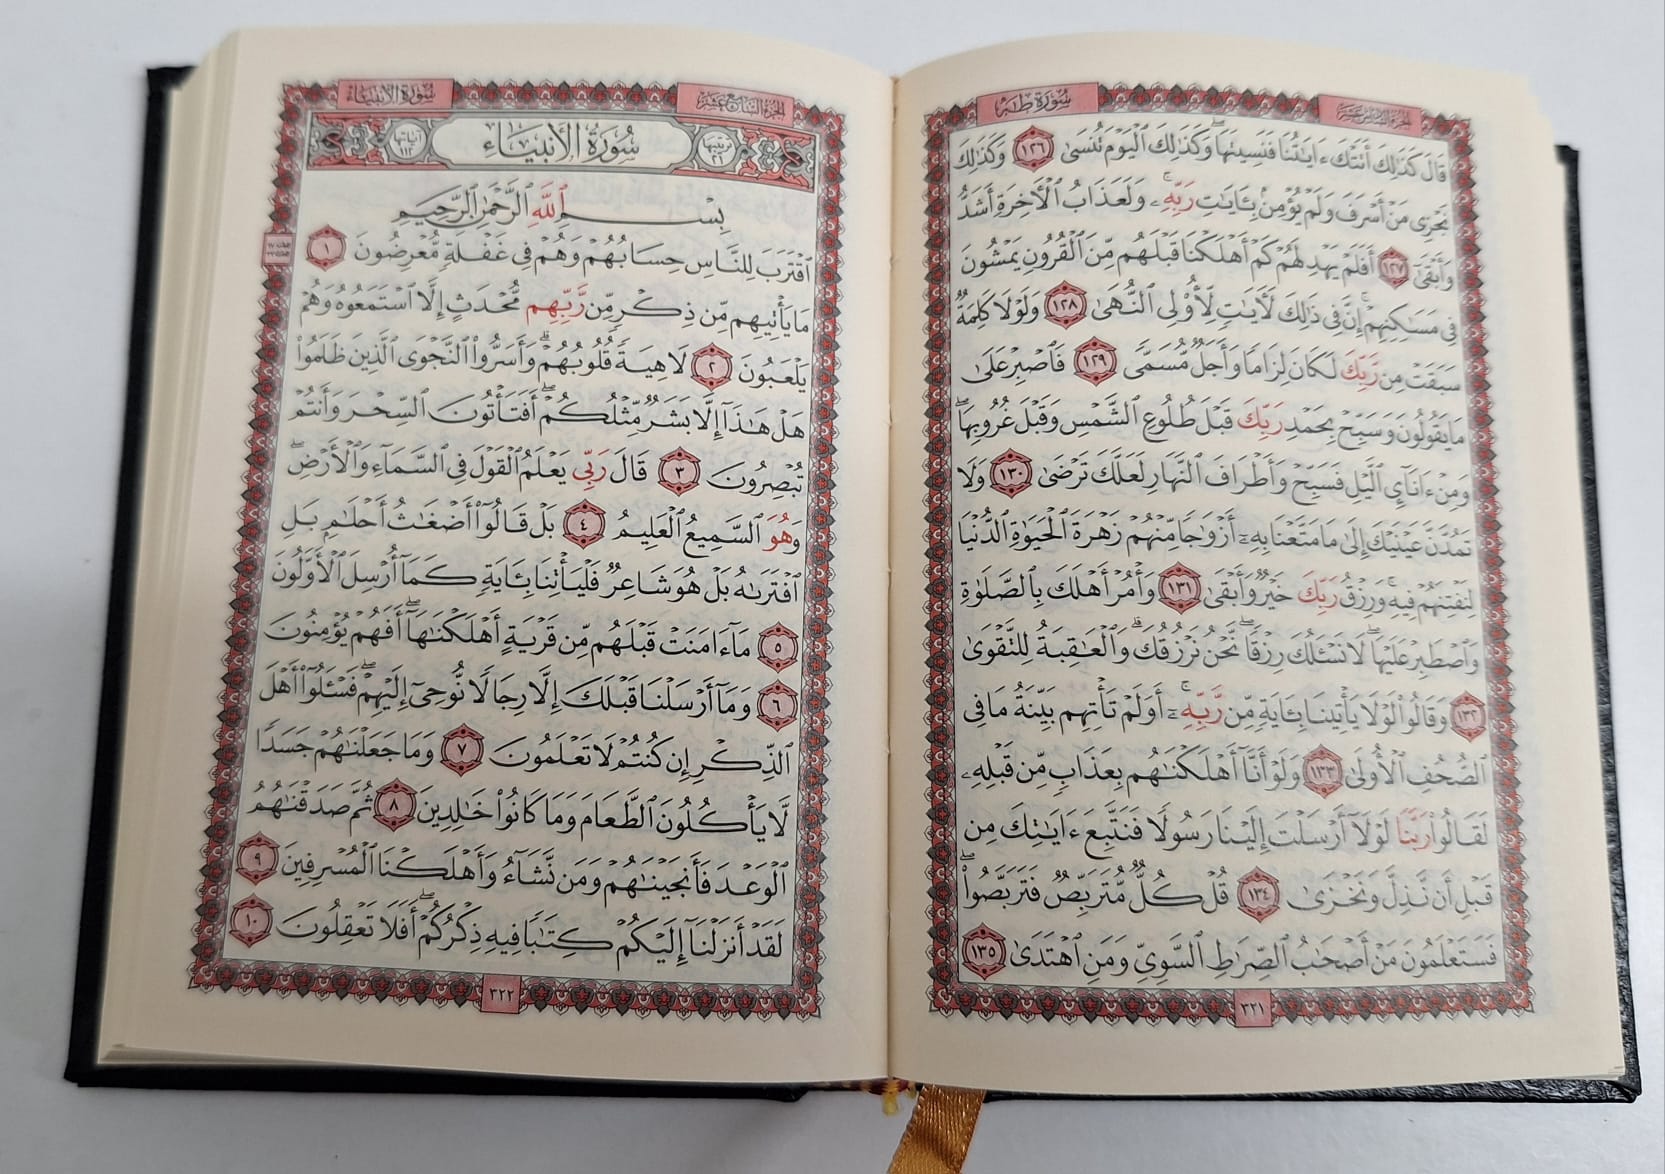 سُورَةُ طه
الجزء السادس عشر
قَالَ كَذَٰلِكَ أَتَتْكَ ءَايَٰتُنَا فَنَسِيتَهَا ۖ وَكَذَٰلِكَ ٱلْيَوْمَ تُنسَىٰ ١٢٦ وَكَذَٰلِكَ
نَجْزِى مَنْ أَسْرَفَ وَلَمْ يُؤْمِنۢ بِـَٔايَٰتِ رَبِّهِۦ ۚ وَلَعَذَابُ ٱلْـَٔاخِرَةِ أَشَدُّ
وَأَبْقَىٰٓ ١٢٧ أَفَلَمْ يَهْدِ لَهُمْ كَمْ أَهْلَكْنَا قَبْلَهُم مِّنَ ٱلْقُرُونِ يَمْشُونَ
فِى مَسَٰكِنِهِمْ ۗ إِنَّ فِى ذَٰلِكَ لَـَٔايَٰتٍ لِّأُو۟لِى ٱلنُّهَىٰ ١٢٨ وَلَوْلَا كَلِمَةٌ
سَبَقَتْ مِن رَّبِّكَ لَكَانَ لِزَامًا وَأَجَلٌ مُّسَمًّى ١٢٩ فَٱصْبِرْ عَلَىٰ
مَا يَقُولُونَ وَسَبِّحْ بِحَمْدِ رَبِّكَ قَبْلَ طُلُوعِ ٱلشَّمْسِ وَقَبْلَ غُرُوبِهَا ۖ
وَمِنْ ءَانَآئِ ٱلَّيْلِ فَسَبِّحْ وَأَطْرَافَ ٱلنَّهَارِ لَعَلَّكَ تَرْضَىٰ ١٣٠ وَلَا
تَمُدَّنَّ عَيْنَيْكَ إِلَىٰ مَا مَتَّعْنَا بِهِۦٓ أَزْوَٰجًا مِّنْهُمْ زَهْرَةَ ٱلْحَيَوٰةِ ٱلدُّنْيَا
لِنَفْتِنَهُمْ فِيهِ ۚ وَرِزْقُ رَبِّكَ خَيْرٌ وَأَبْقَىٰ ١٣١ وَأْمُرْ أَهْلَكَ بِٱلصَّلَوٰةِ
وَٱصْطَبِرْ عَلَيْهَا ۖ لَا نَسْـَٔلُكَ رِزْقًا ۖ نَّحْنُ نَرْزُقُكَ ۗ وَٱلْعَٰقِبَةُ لِلتَّقْوَىٰ
١٣٢ وَقَالُوا۟ لَوْلَا يَأْتِينَا بِـَٔايَةٍ مِّن رَّبِّهِۦٓ ۚ أَوَلَمْ تَأْتِهِم بَيِّنَةُ مَا فِى
ٱلصُّحُفِ ٱلْأُولَىٰ ١٣٣ وَلَوْ أَنَّآ أَهْلَكْنَٰهُم بِعَذَابٍ مِّن قَبْلِهِۦ
لَقَالُوا۟ رَبَّنَا لَوْلَآ أَرْسَلْتَ إِلَيْنَا رَسُولًا فَنَتَّبِعَ ءَايَٰتِكَ مِن
قَبْلِ أَن نَّذِلَّ وَنَخْزَىٰ ١٣٤ قُلْ كُلٌّ مُّتَرَبِّصٌ فَتَرَبَّصُوا۟ ۖ
فَسَتَعْلَمُونَ مَنْ أَصْحَٰبُ ٱلصِّرَٰطِ ٱلسَّوِىِّ وَمَنِ ٱهْتَدَىٰ ١٣٥
٣٢١
الجزء السابع عشر
سُورَةُ الأنبياء
ترتيبها ٢١
سُورَةُ الأَنبِيَاء
آياتها ١١٢
بِسْمِ ٱللَّهِ ٱلرَّحْمَٰنِ ٱلرَّحِيمِ
ٱقْتَرَبَ لِلنَّاسِ حِسَابُهُمْ وَهُمْ فِى غَفْلَةٍ مُّعْرِضُونَ ١
مَا يَأْتِيهِم مِّن ذِكْرٍ مِّن رَّبِّهِم مُّحْدَثٍ إِلَّا ٱسْتَمَعُوهُ وَهُمْ
يَلْعَبُونَ ٢ لَاهِيَةً قُلُوبُهُمْ ۗ وَأَسَرُّوا۟ ٱلنَّجْوَى ٱلَّذِينَ ظَلَمُوا۟
هَلْ هَٰذَآ إِلَّا بَشَرٌ مِّثْلُكُمْ ۖ أَفَتَأْتُونَ ٱلسِّحْرَ وَأَنتُمْ
تُبْصِرُونَ ٣ قَالَ رَبِّى يَعْلَمُ ٱلْقَوْلَ فِى ٱلسَّمَآءِ وَٱلْأَرْضِ ۖ
وَهُوَ ٱلسَّمِيعُ ٱلْعَلِيمُ ٤ بَلْ قَالُوٓا۟ أَضْغَٰثُ أَحْلَٰمٍۭ بَلِ
ٱفْتَرَىٰهُ بَلْ هُوَ شَاعِرٌ فَلْيَأْتِنَا بِـَٔايَةٍ كَمَآ أُرْسِلَ ٱلْأَوَّلُونَ
٥ مَآ ءَامَنَتْ قَبْلَهُم مِّن قَرْيَةٍ أَهْلَكْنَٰهَآ ۖ أَفَهُمْ يُؤْمِنُونَ
٦ وَمَآ أَرْسَلْنَا قَبْلَكَ إِلَّا رِجَالًا نُّوحِىٓ إِلَيْهِمْ ۖ فَسْـَٔلُوٓا۟ أَهْلَ
ٱلذِّكْرِ إِن كُنتُمْ لَا تَعْلَمُونَ ٧ وَمَا جَعَلْنَٰهُمْ جَسَدًا
لَّا يَأْكُلُونَ ٱلطَّعَامَ وَمَا كَانُوا۟ خَٰلِدِينَ ٨ ثُمَّ صَدَقْنَٰهُمُ
ٱلْوَعْدَ فَأَنجَيْنَٰهُمْ وَمَن نَّشَآءُ وَأَهْلَكْنَا ٱلْمُسْرِفِينَ ٩
لَقَدْ أَنزَلْنَآ إِلَيْكُمْ كِتَٰبًا فِيهِ ذِكْرُكُمْ ۖ أَفَلَا تَعْقِلُونَ ١٠
٣٢٢